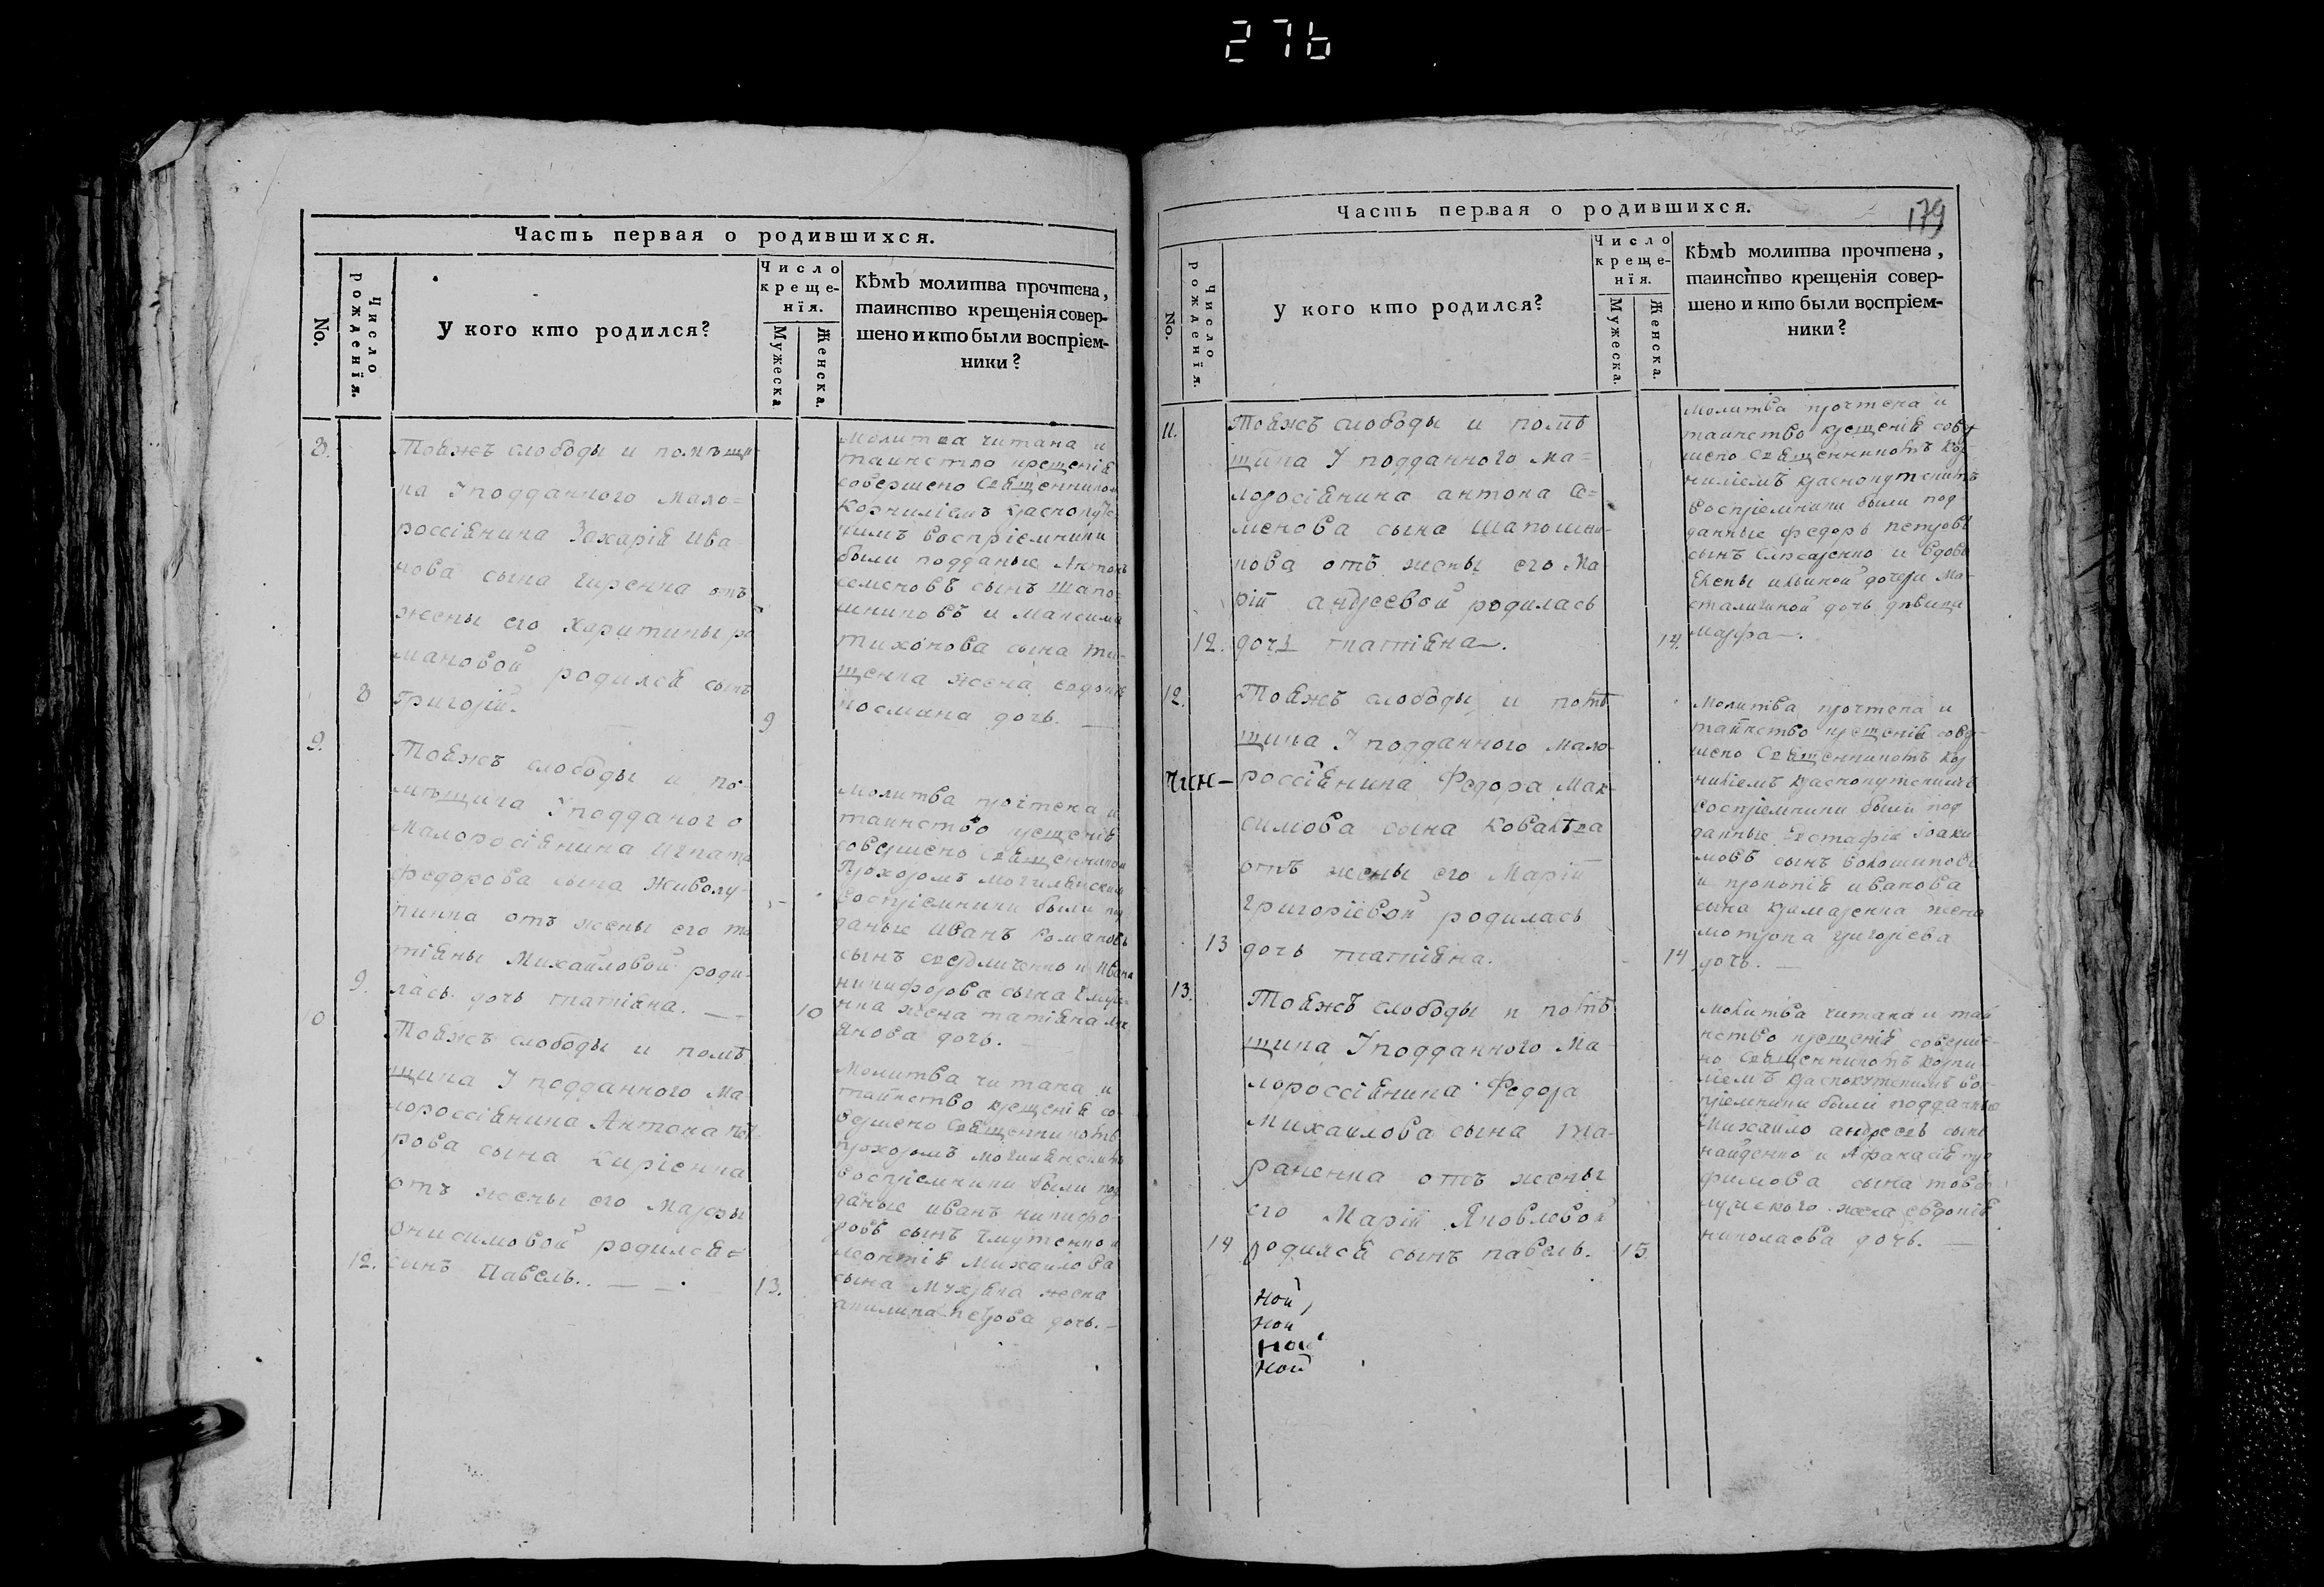 276
Часть первая о родившихся.
No.
Число рожденїя.
У кого кто родился?
Число крещенїя.
Мужеска
Женска.
КѢмЪ молитва прочтена,
таинство крещенїя совер-
шено и кто были воспрїем-
ники?
8.
Тояжъ слободы и помѣщи
ка І подданного мало=
россіянина Захарія ива
нова сына гиренка отъ
жены его харитины ро
мановой родился сынъ
8
григорій.
9
молитва читана и
таинство крещенія
совершено Священником
Корниліемъ
воспріемники
были подданые Антонъ
семеновъ сынъ шапо=
шниковъ и максима
тихонова сына ти-
щенка жена
дочь.
9.
Тояжъ слободы и по-
мѣщика І подданого
малоросіянина игната
федорова сына живолу-
пинка отъ жены его та
тіяны Михайловой роди-
9.
лась дочь татіяна.
10
молитва прочтена и
таинство крещенія
совершено Священником
Прохоромъ могилянским
воспріемники были под
даные иванъ романовъ
сынъ и ивана
никифорова сына
нка жена татіяна
дочь.
10
Тояжъ слободы и помѣ
щика І подданного ма
лороссіянина Антона пет
рова сына киріенка
отъ жены его марфы
онисимовой родился=
12.
сынъ Павелъ.
13.
молитва читана и
таинство крещенія со
вершено Священникомъ
прохоромъ могилянскимъ
воспріемники были под
даные иванъ никифо
ровъ сынъ чмутенко и
леонтія михайлова
сына жена
акилина петрова дочь.
Часть первая о родившихся.
179
No.
Число рожденїя.
У кого кто родился?
Число крещенїя.
Мужеска.
Женска.
КѢмЪ молитва прочтена,
таинство крещенїя совер-
шено и кто были воспрїем-
ники?
11.
Тояжъ слободы и помѣ
щика І подданного ма=
лоросіянина антона се=
менова сына шапошни-
кова отъ жены его Ма
рій андреевой родилась
12.
дочь татіяна.
14.
молитва прочтена и
таинство крещенія совер
шено Священникомъ Кор
ниліемъ краснокутскимъ
воспріемники были под-
данные федоръ петровъ
сынъ и вдовы
Елены ильиной дочери ма-
дочь дѣвица
марфа.
12.
Тояжъ слободы и помѣ
щика І подданного мало-
чин-
россіянина Федора мак-
симова сына ковалѣва
отъ жены его Марій
григоріевой родилась
13
дочь татіяна.
14
Молитва прочтена и
таинство крещенія совер-
шено Священникомъ Кор
ниліемъ краснокутскимъ
воспріемники были под
данные Евстафій Іоаки
мовъ сынъ волошиновъ
и прокопія иванова
сына крамаренка жена
мотрона григорієва
дочь.
13.
Тояжъ слободы и помѣ
щика І подданного Ма
лороссіянина Федора
михайлова сына та-
раненка отъ жены
его Марій Яковлевой
14
родился сынъ павелъ.
15.
Молитва читана и таи
нство крещенія соверше-
но Священникомъ Корни
ліемъ краснокутскимъ вос-
пріемники были подданные
Михайло андреевъ сынъ
найденко и Афанасія тро
фимова сына
жена евдокія
николаева дочь.
ной,
ной
ной
ной